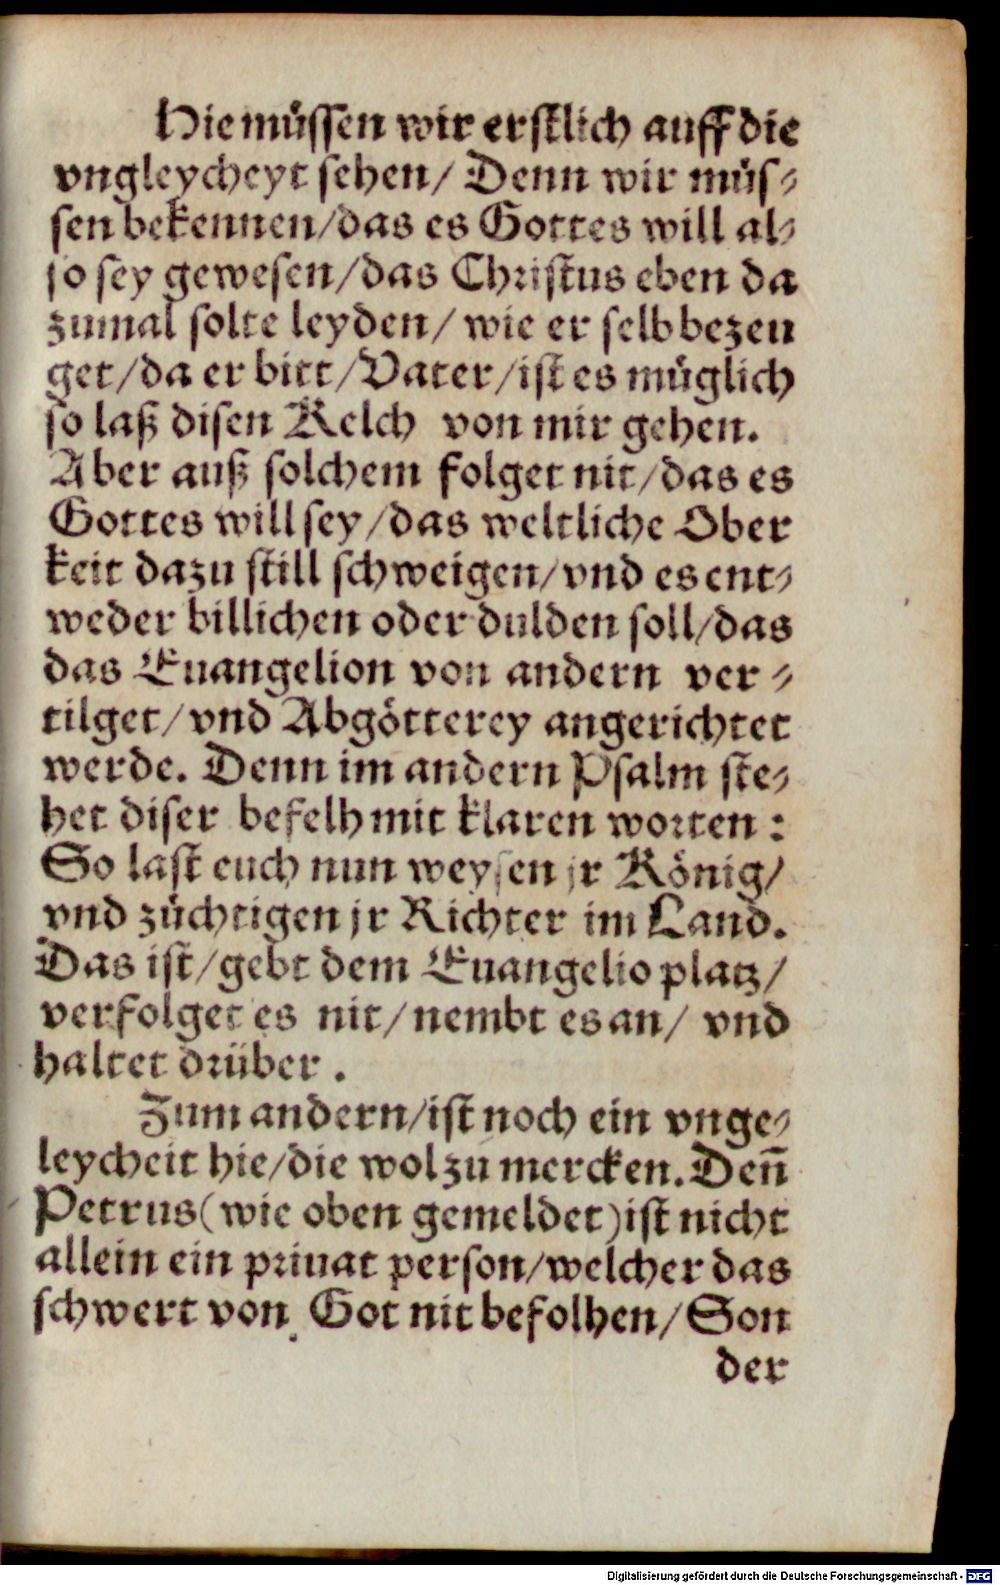 Hie müssen wir erstlich auff die
vngleycheyt sehen/ Denn wir müs⸗
sen bekennen/das es Gottes will al⸗
so sey gewesen/das Christus eben da
zumal solte leyden/ wie er selb bezeu
get/da er bitt/Vater/ist es müglich
so laß disen Kelch von mir gehen.
Aber auß solchem folget nit/das es
Gottes will sey/das weltliche Ober
keit dazu still schweigen/vnd es ent⸗
weder billichen oder dulden soll/das
das Euangelion von andern ver⸗
tilget/vnd Abgötterey angerichtet
werde. Denn im andern Psalm ste⸗
het diser befelh mit klaren worten:
So last euch nun weysen jr König/
vnd züchtigen jr Richter im Land.
Das ist/gebt dem Euangelio platz/
verfolget es nit/nembt es an/ vnd
haltet drüber.
Zum andern/ist noch ein vnge⸗
leycheit hie/die wol zu mercken. Deñ
Petrus(wie oben gemeldet)ist nicht
allein ein priuat person/welcher das
schwert von Got nit befolhen/Son
der
Digitalisierung gefördert durch die Deutsche Forschungsgemeinschaft - DFG